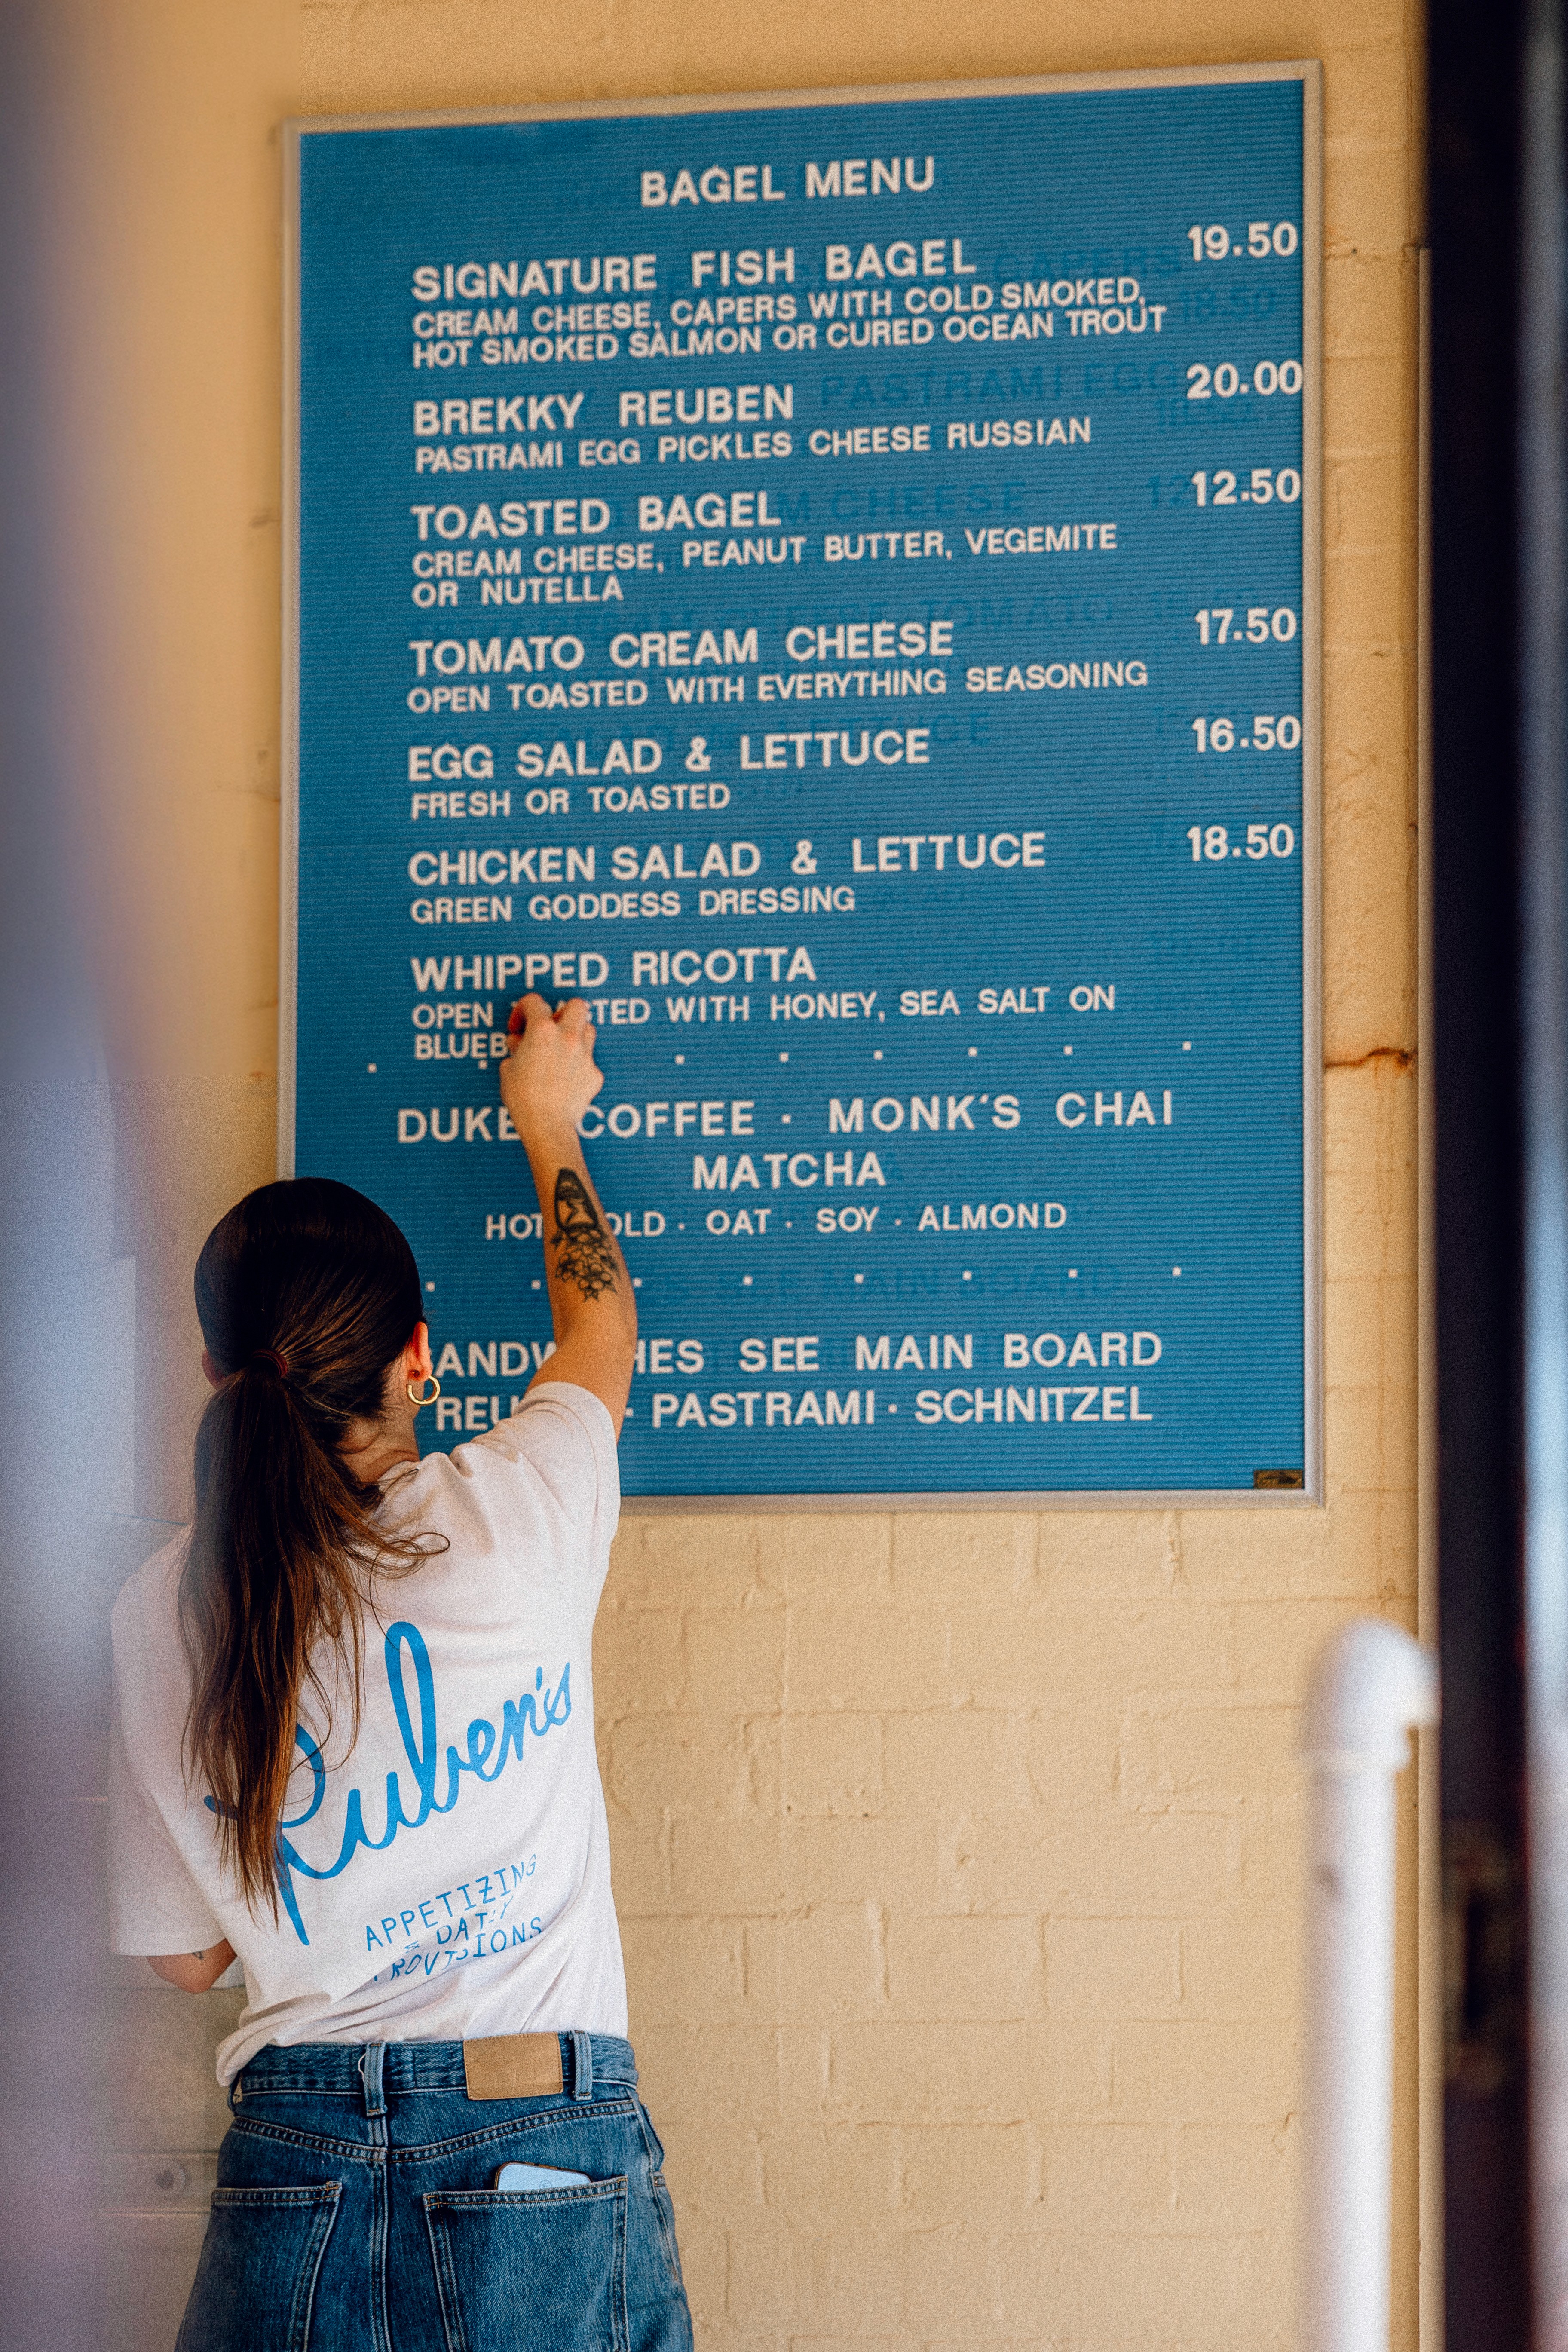 BAGEL MENU
SIGNATURE FISH BAGEL 19.50
CREAM CHEESE, CAPERS WITH COLD SMOKED,
HOT SMOKED SALMON OR CURED OCEAN TROUT
BREKKY REUBEN 20.00
PASTRAMI EGG PICKLES CHEESE RUSSIAN
TOASTED BAGEL 12.50
CREAM CHEESE, PEANUT BUTTER, VEGEMITE
OR NUTELLA
TOMATO CREAM CHEESE 17.50
OPEN TOASTED WITH EVERYTHING SEASONING
EGG SALAD & LETTUCE 16.50
FRESH OR TOASTED
CHICKEN SALAD & LETTUCE 18.50
GREEN GODDESS DRESSING
WHIPPED RICOTTA
OPEN WITH HONEY, SEA SALT ON
COFFEE · MONK'S CHAI
MATCHA
HOT · OAT · SOY · ALMOND
SEE MAIN BOARD
· PASTRAMI · SCHNITZEL
Ruben's
APPETIZING
& DAILY
PROVISIONS